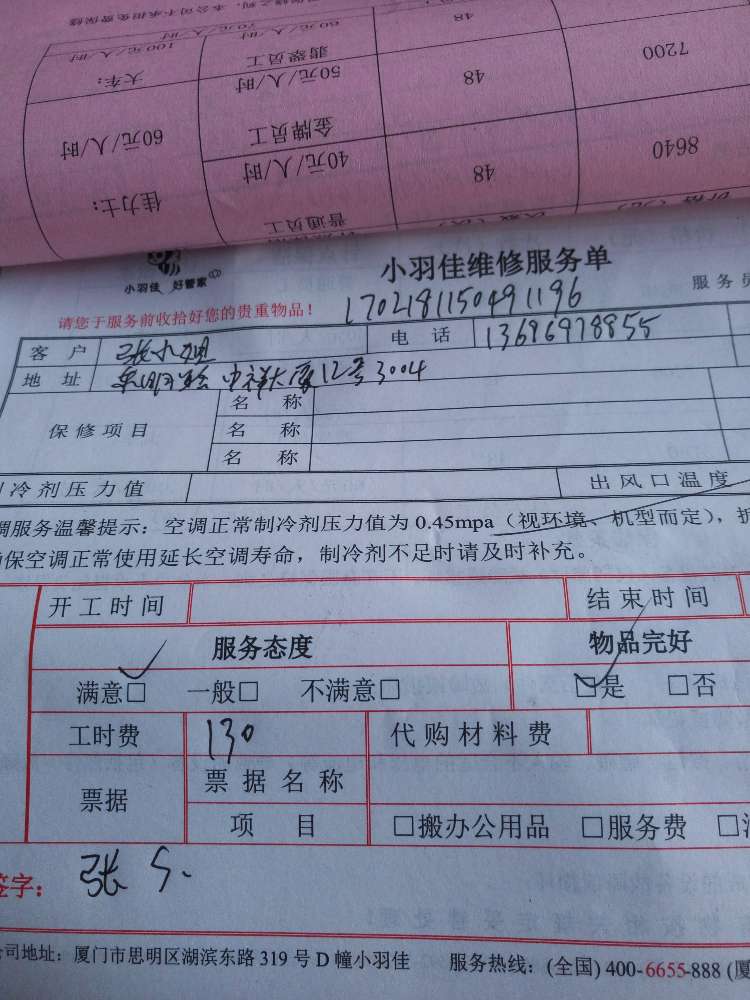 保修之列，本公司不承担免费保修
60元/人/时
70元/人/时
48
大车：
100元/人/时
翡翠员工
50元/人/时
48
7200
佳力士：
60元/人/时
金牌员工
40元/人/时
48
8640
普通员工
小羽佳 好管家
小羽佳维修服务单
请您于服务前收拾好您的贵重物品！
1702181150491196
服务员
客 户
张小姐
电 话
13696978855
地 址
中祥大厦12号3004
保修项目
名 称
名 称
名 称
冷剂压力值
出风口温度
调服务温馨提示：空调正常制冷剂压力值为 0.45mpa（视环境、机型而定），
保空调正常使用延长空调寿命，制冷剂不足时请及时补充。
开工时间
结束时间
服务态度
物品完好
满意□ 一般□ 不满意□
□是 □否
工时费
130
代购材料费
票据
票据名称
项 目
□搬办公用品 □服务费
签字：
张
公司地址：厦门市思明区湖滨东路 319 号 D 幢小羽佳 服务热线：(全国) 400-6655-888 (厦